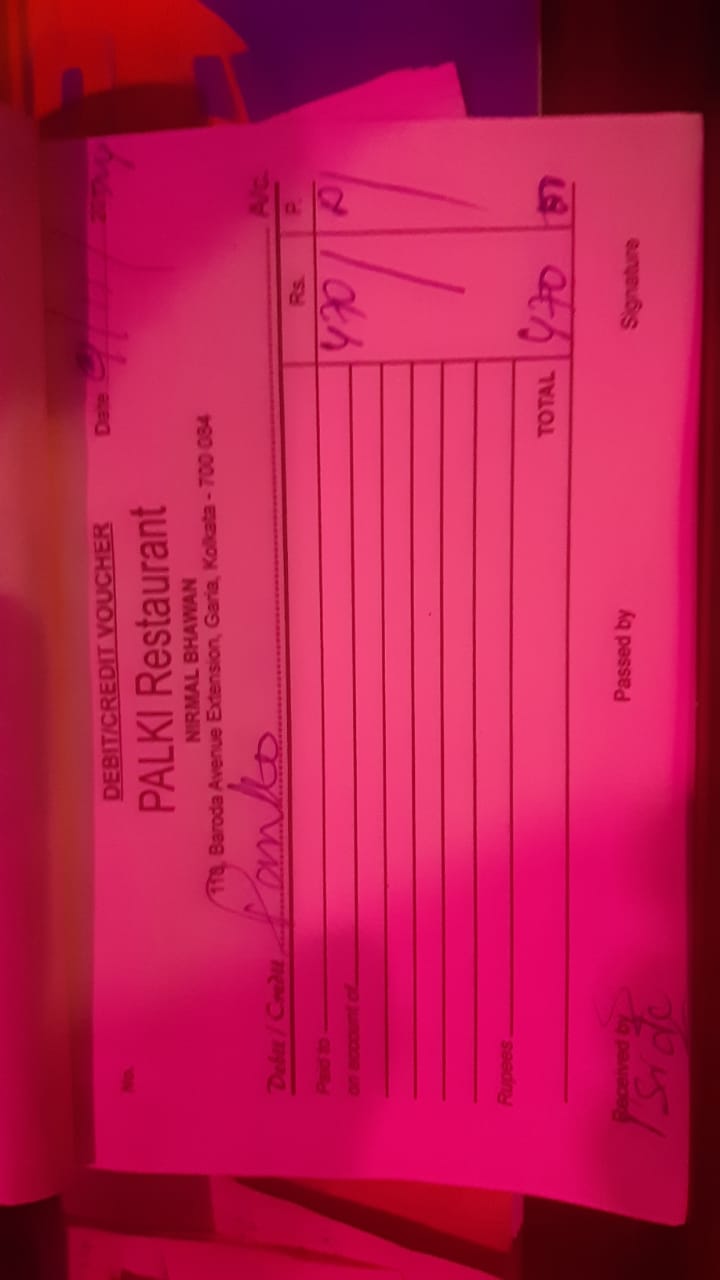 DEBIT/CREDIT VOUCHER
No.
Date
PALKI Restaurant
NIRMAL BHAWAN
Baroda Avenue Extension, Garia, Kolkata - 700 084
Debit / Credit A/c.
Rs. P.
Paid to 470
on account of
Rupees
TOTAL 470
Received by Passed by Signature